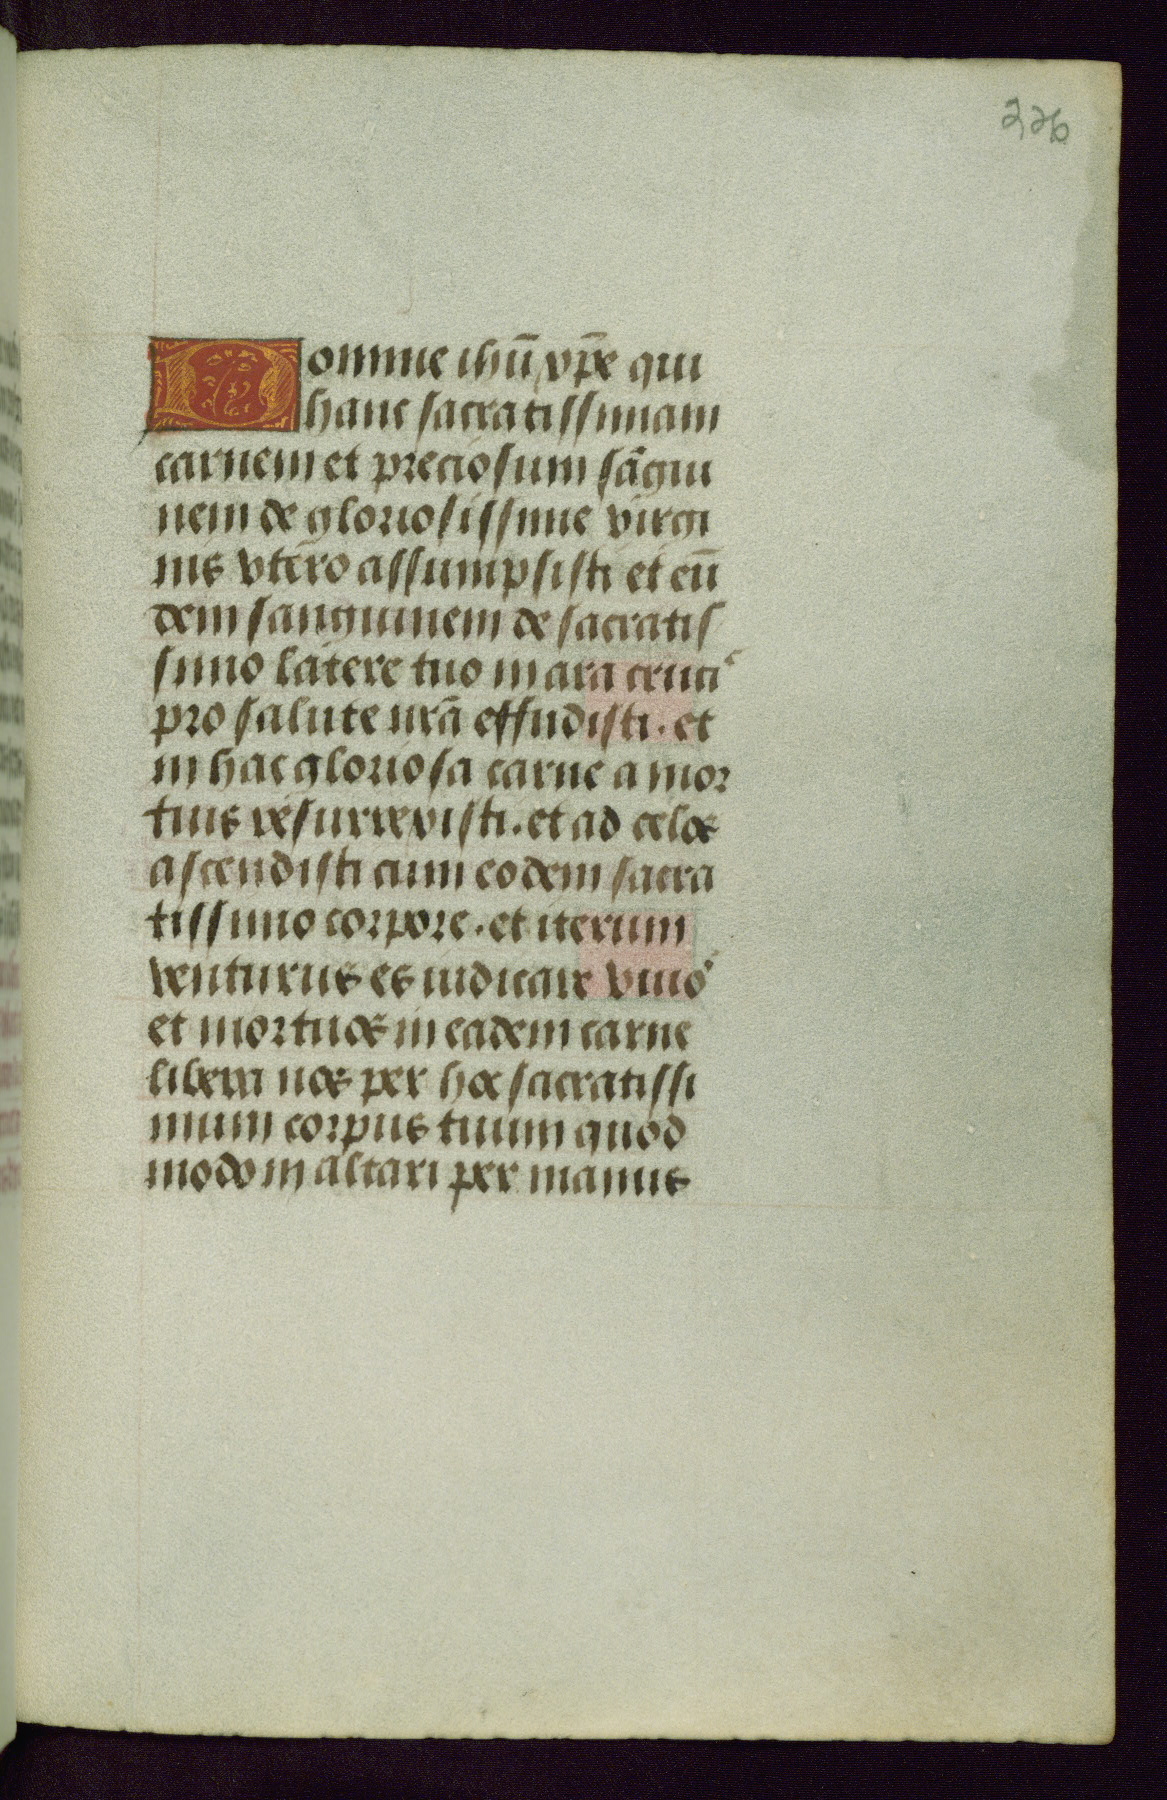 226
Domine ihū xp̄e qui
hanc sacratissimam
carnem et preciosum sāgui
nem de gloriosissime virgi
nis vtero assumpsisti et eū
dem sanguinem de sacratis
simo latere tuo in ara cruci᷒
pro salute nr̄a effudisti. et
in hac gloriosa carne a mor
tuis resurrexisti. et ad celos
ascendisti cum eodem sacra
tissimo corpore. et iterum
venturus es iudicare viuo᷒
et mortuos in eadem carne
libera nos per hoc sacratissi
mum corpus tuum quod
modo in altari per manus